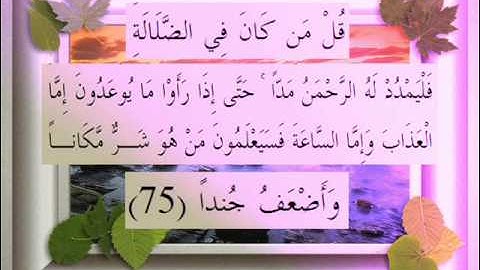 قُلْ مَن كَانَ فِي الضَّلَالَةِ
فَلْيَمْدُدْ لَهُ الرَّحْمَنُ مَدّاً ۚ حَتَّى إِذَا رَأَوْا مَا يُوعَدُونَ إِمَّا
الْعَذَابَ وَإِمَّا السَّاعَةَ فَسَيَعْلَمُونَ مَنْ هُوَ شَرٌّ مَّكَانــاً
وَأَضْعَفُ جُنداً (75)